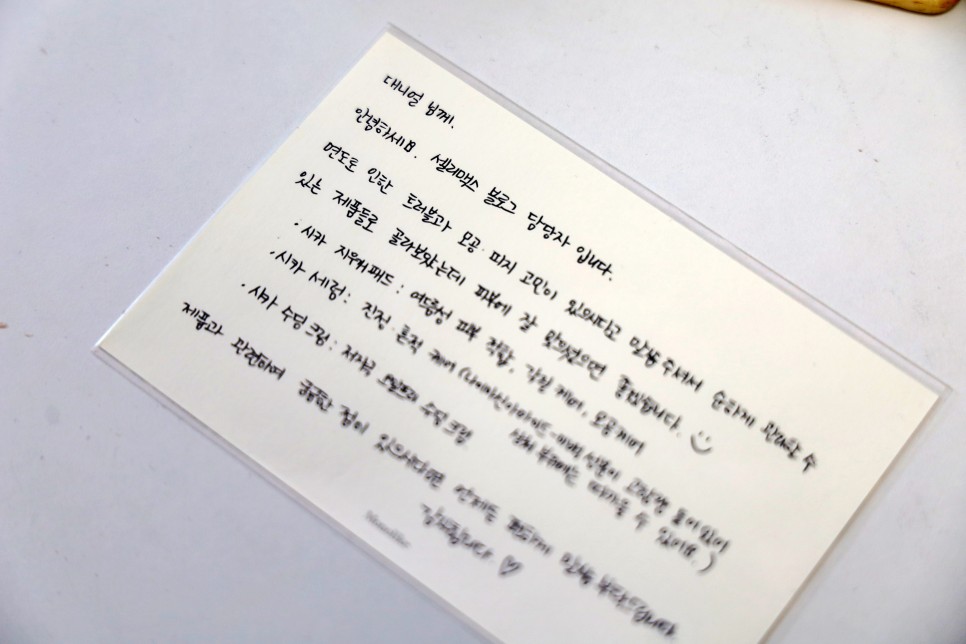 대니얼 님께.
안녕하세요. 셀리맥스 블로그 담당자 입니다.
면도로 인한 트러블과 모공·피지 고민이 있으시다고 말씀 주셔서 순하게 관리할 수
있는 제품들로 골라보았는데 피부에 잘 맞으셨으면 좋겠습니다. :)
· 시카 지우개패드 : 여드름성 피부 적합, 각질 케어, 모공케어
· 시카 세럼 : 진정·흔적 케어 (나이아신아마이드-미백 성분이 고함량 들어있어
상처 부위에는 따가울 수 있어요.)
· 시카 수딩크림 : 저자극 수딩크림
제품과 관련하여 궁금한 점이 있으시다면 언제든 편하게 말씀 부탁드립니다.
감사합니다. ♡